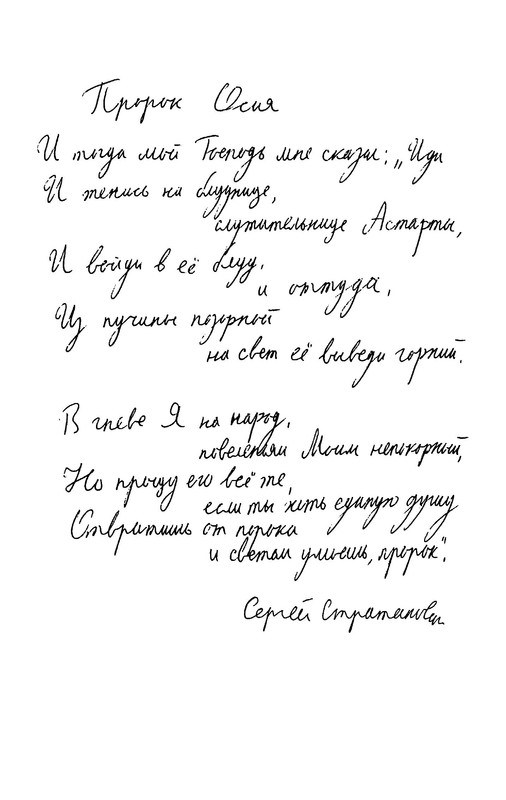 Пророк Осия
И тогда мой Господь мне сказал: „Иди
И женись на блуднице,
служительнице Астарты,
И войди в её блуд,
и оттуда,
Из пучины позорной
на свет её выведи горний.
В гневе Я на народ,
повеленьям Моим непокорный,
Но прощу его всё же,
если ты хоть единую душу
Отвратишь от порока
и светом умоешь, пророк".
Сергей Стратановский